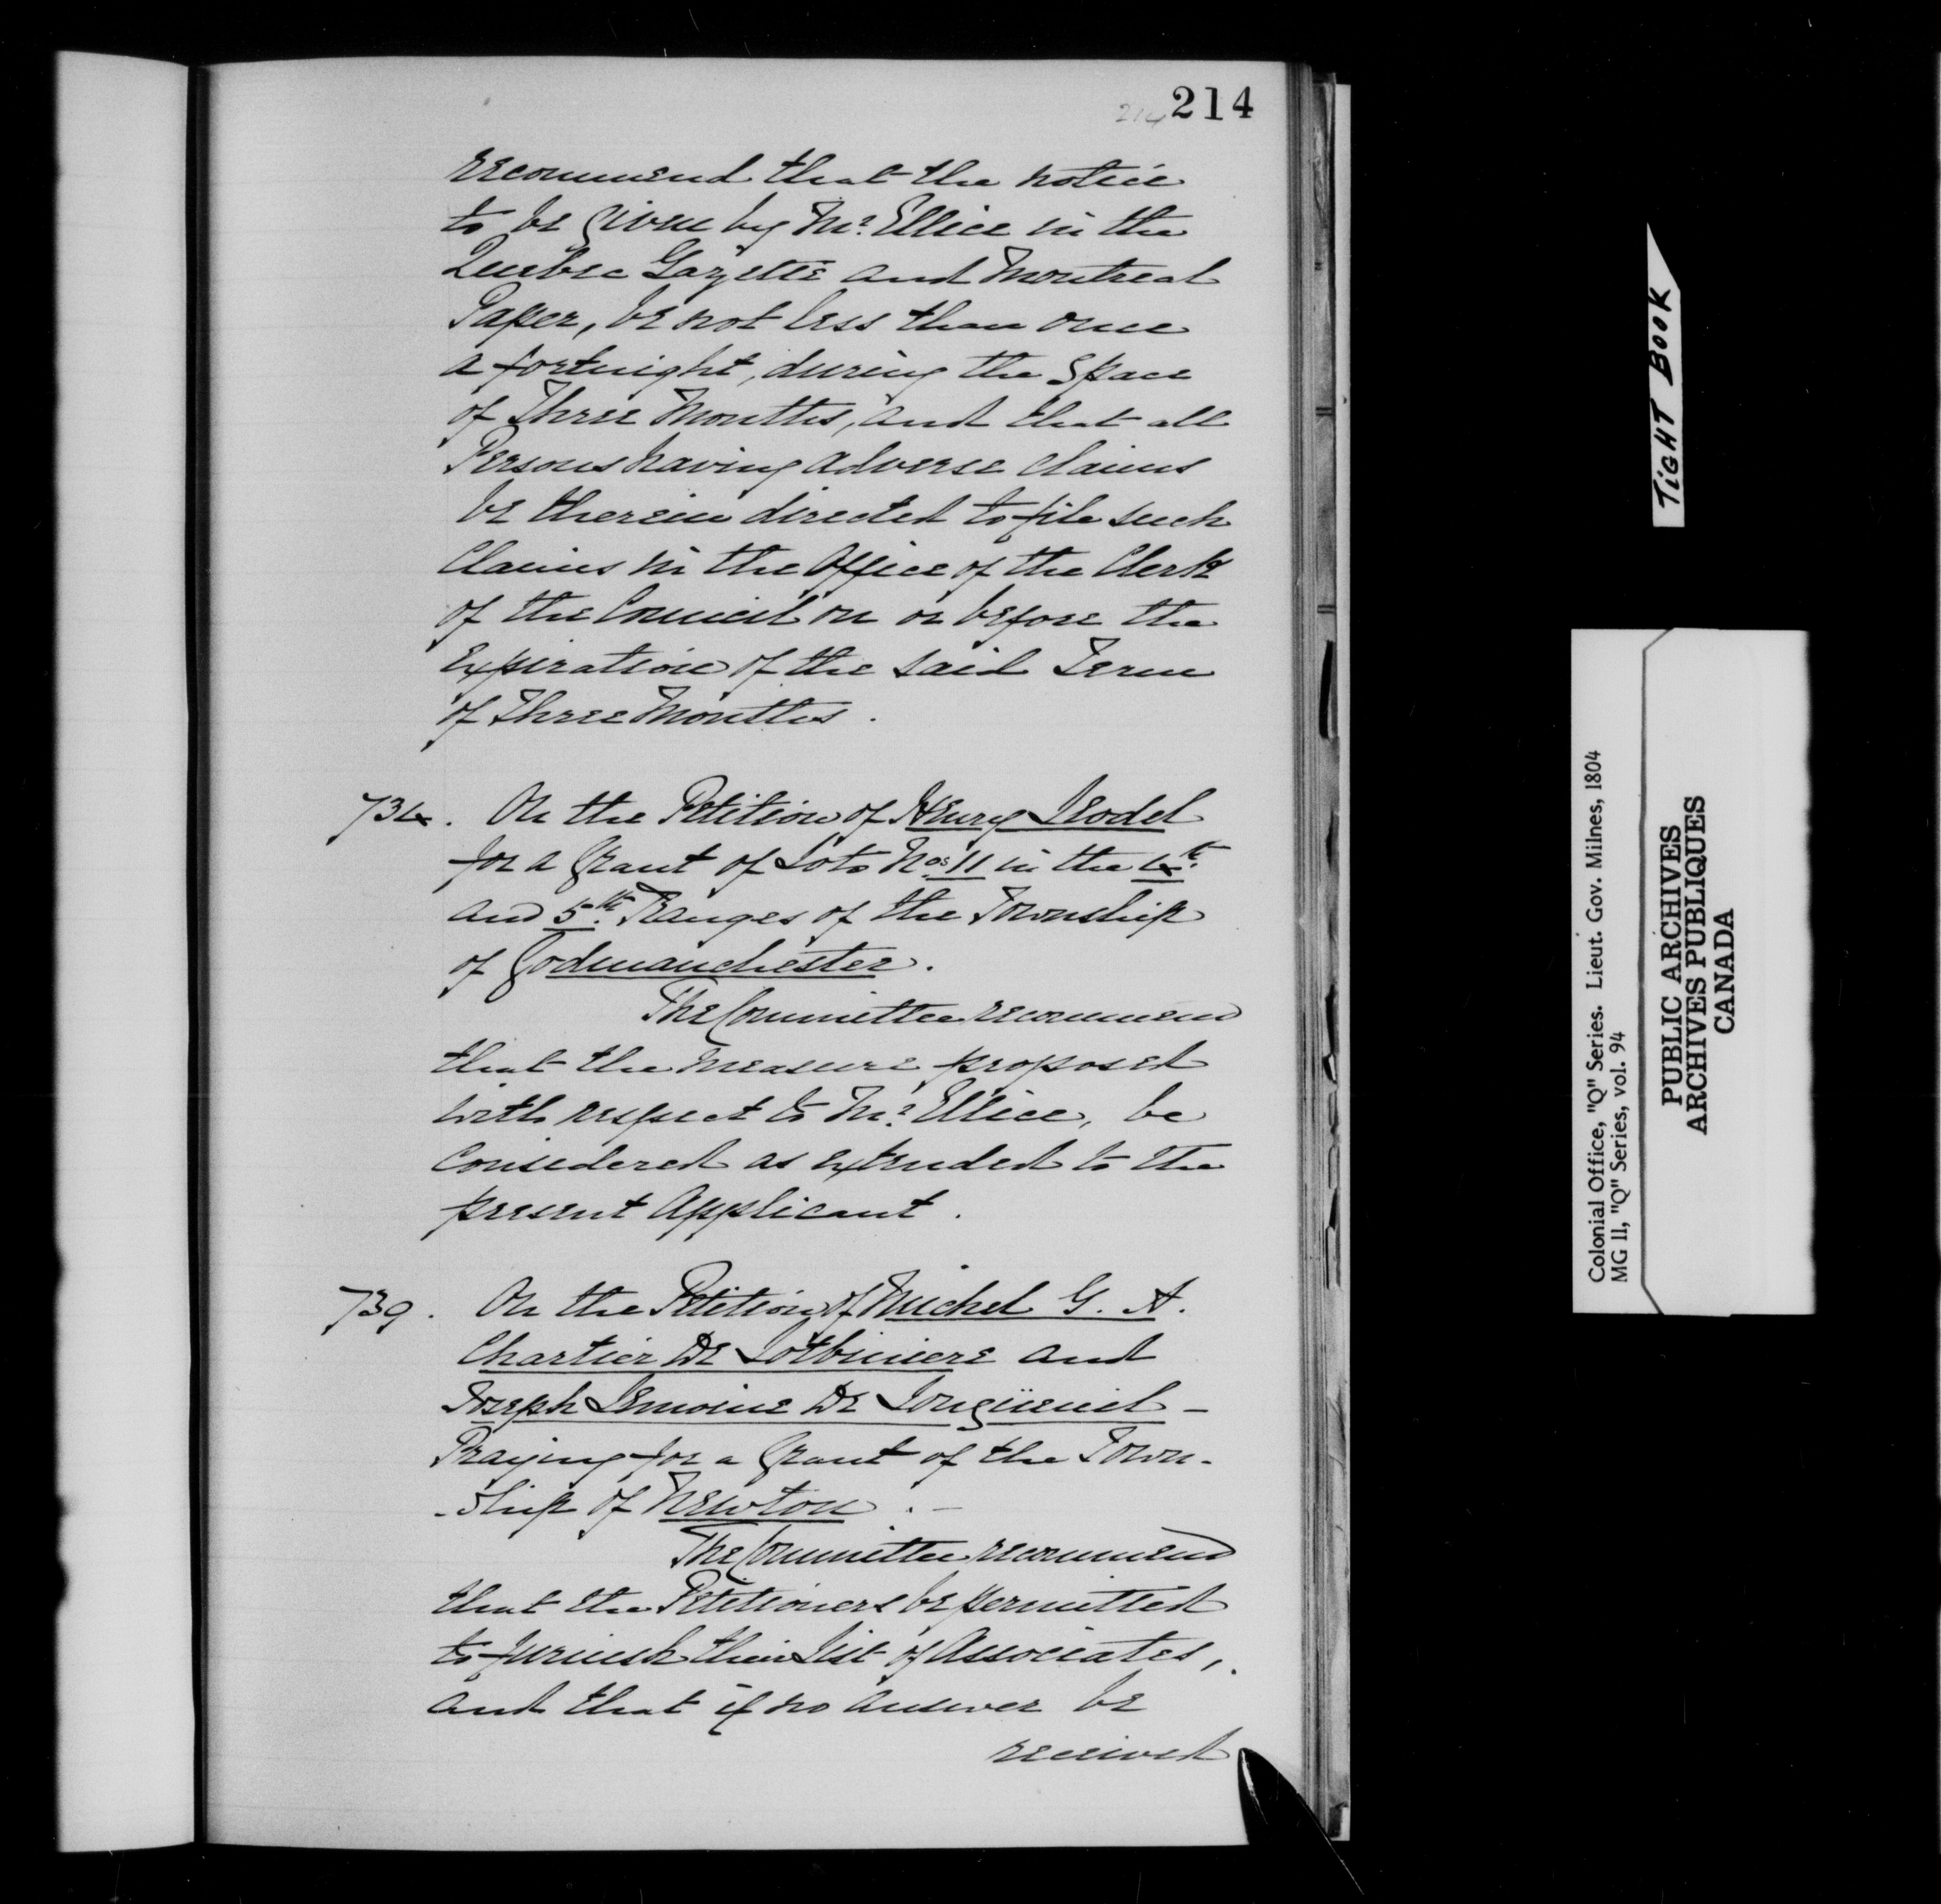 214 214
recommend that the notice
to be given by Mr. Ellice in the
Quebec Gazette and Montreal
Paper, be not less than once
a fortnight, during the Space
of Three Months, and that all
Persons having adverse claims
be therein directed to file such
Claims in the Office of the Clerk
of the Council on or before the
Expiration of the said Term
of Three Months.
734. On the Petition of Henry
for a Grant of Lots Nos. 11 in the 4th.
and 5th. Ranges of the Township
of Godmanchester.
The Committee recommend
that the measure proposed
with respect to Mr. Ellice, be
Considered as extended to the
present Applicant.
739. On the Petition of Michel G. A.
Chartier De Lotbiniere and
Joseph Lemoine De Longüeuil -
Praying for a Grant of the Town-
-ship of Newton. -
The Committee recommend
that the Petitioners be permitted
to furnish their List of Associates,
and that if no answer be
received
TIGHT BOOK
Colonial Office, "Q" Series. Lieut. Gov. Milnes, 1804
MG 11, "Q" Series, vol. 94
PUBLIC ARCHIVES
ARCHIVES PUBLIQUES
CANADA